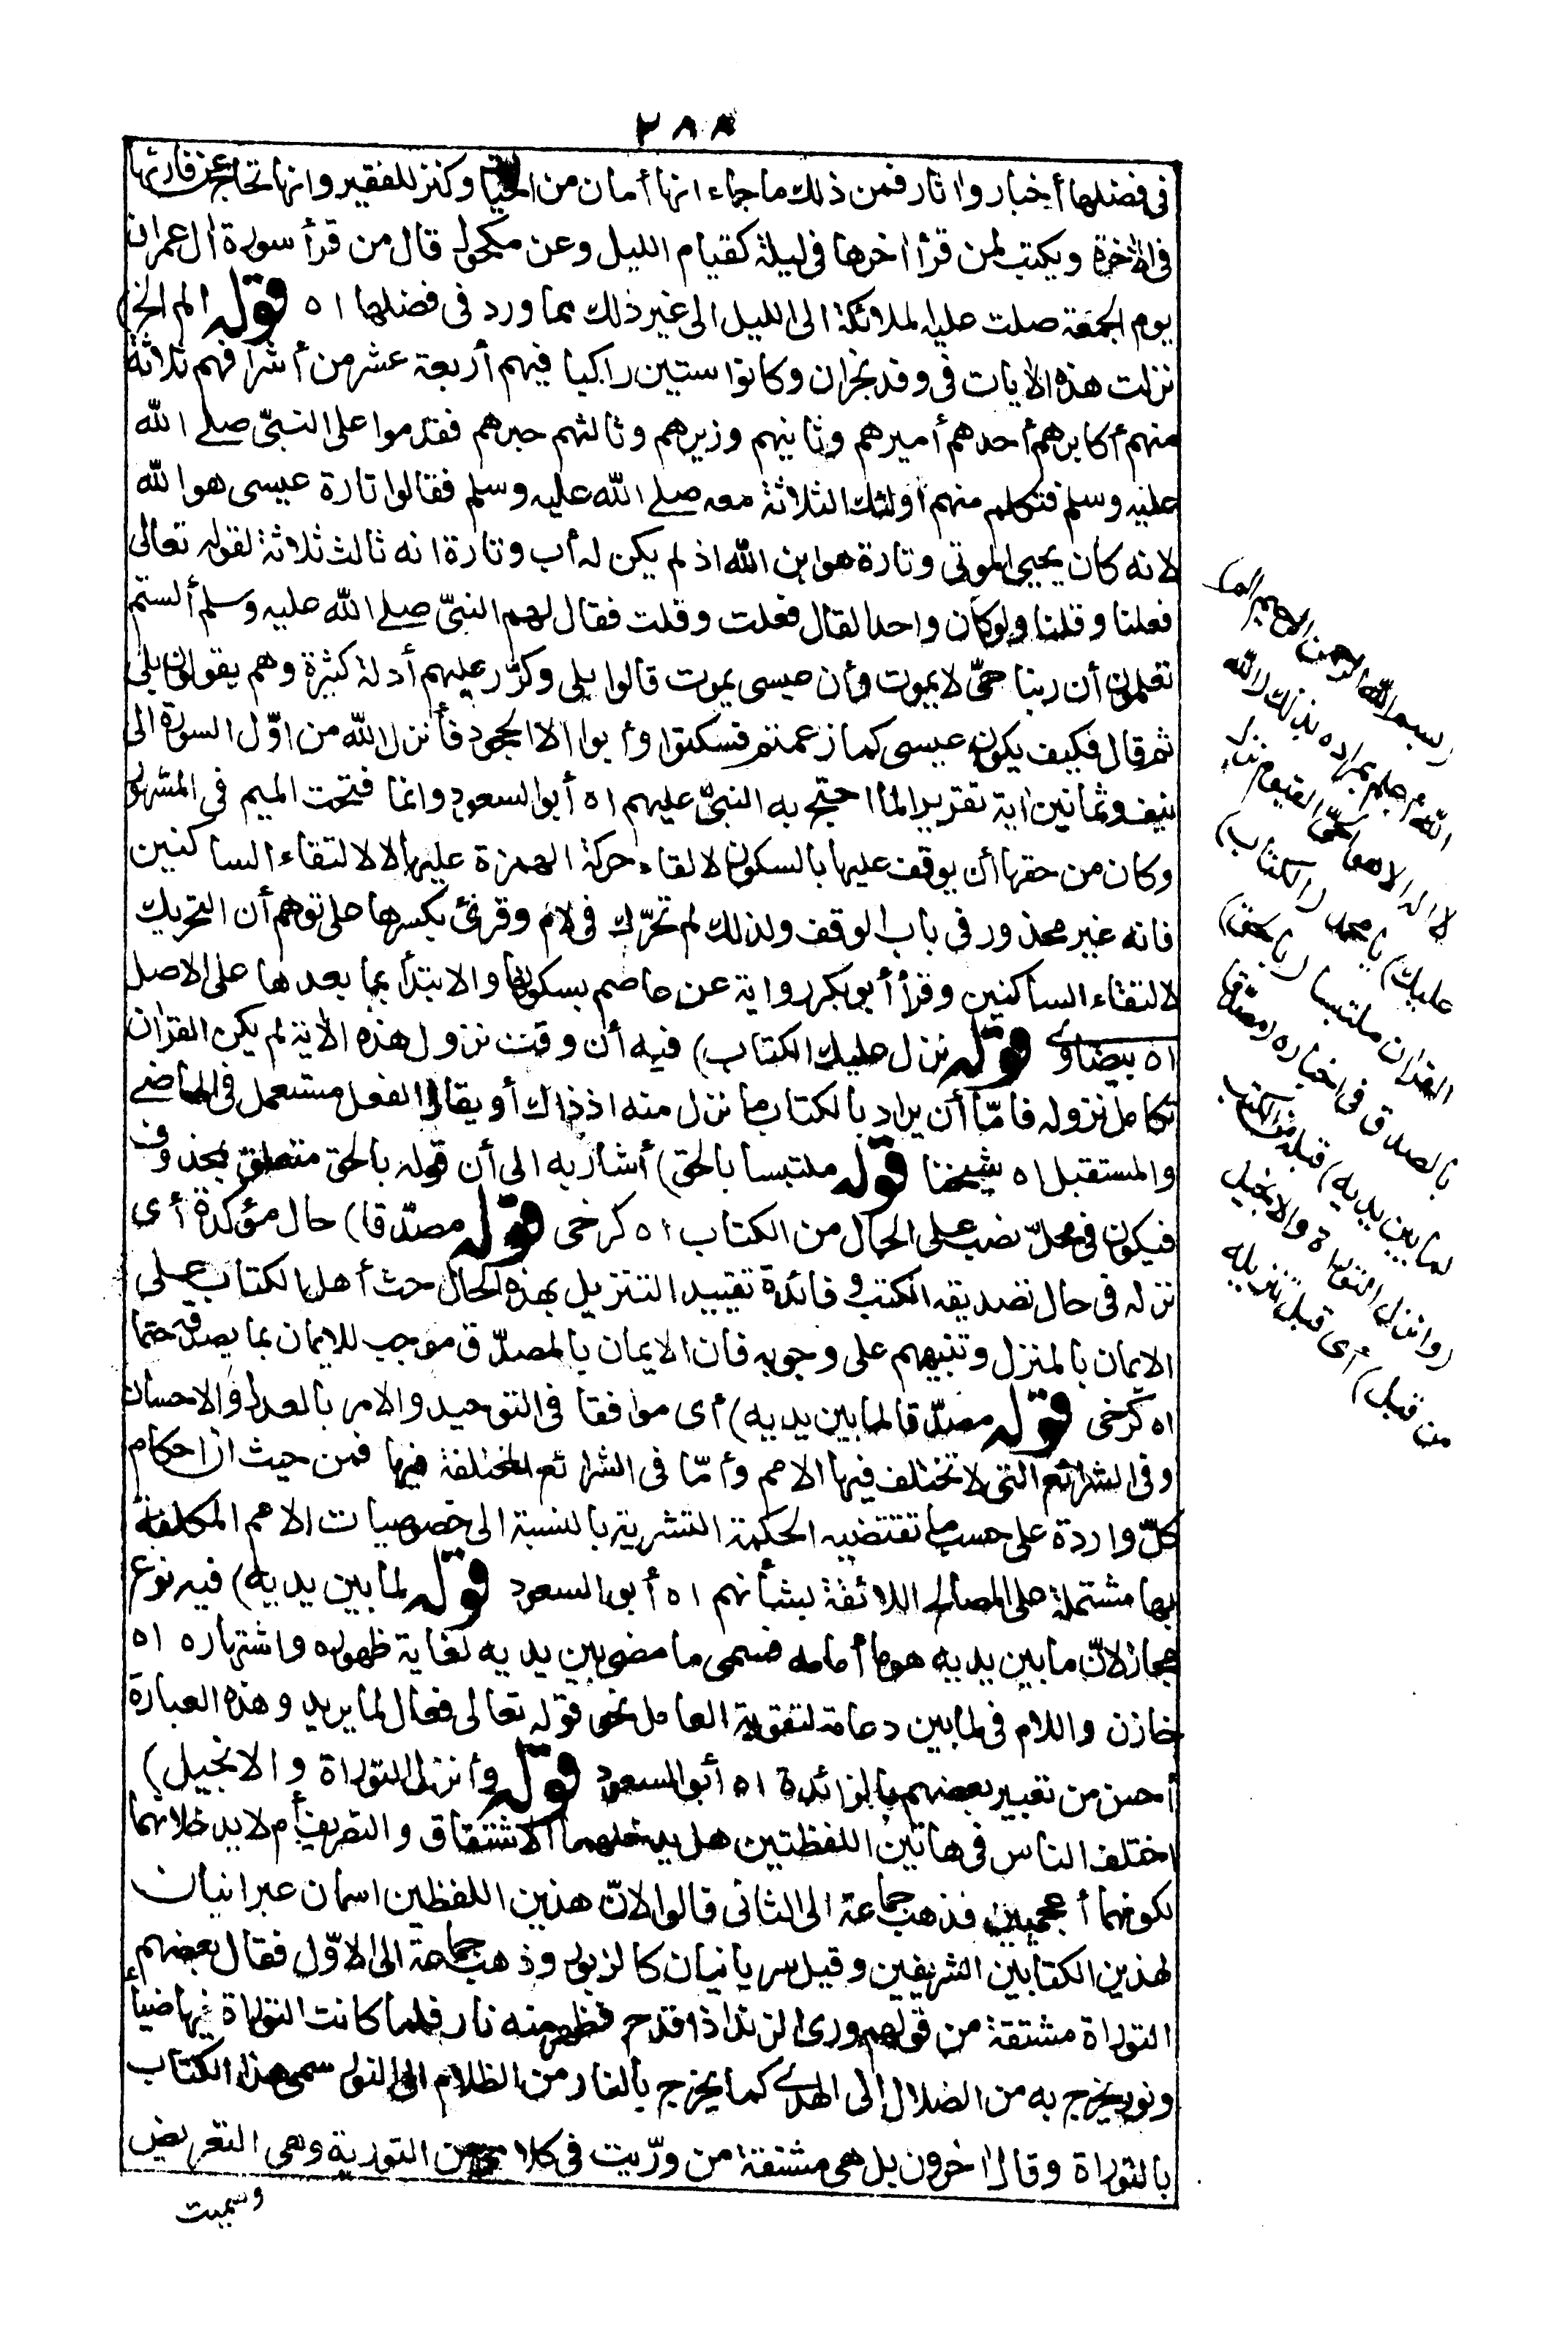 ٢٨٨
فى فضلها أخبار واثار فمن ذلك ما جاء انها أمان من الحيات وكنز للفقير وانها تحاج عن قارئها
فى الاخرة ويكتب لمن قرأ اخرها فى ليلة كقيام الليل وعن مكحول قال من قرأ سورة ال عمران
يوم الجمعة صلت عليه الملائكة الى الليل الى غير ذلك مما ورد فى فضلها اه قوله الم الخ)
نزلت هذه الايات فى وفد نجران وكانوا ستين راكبا فيهم أربعة عشر من أشرافهم ثلاثة
منهم أكابرهم أحدهم أميرهم وثانيهم وزيرهم وثالثهم حبرهم فقدموا على النبىّ صلى الله
عليه وسلم فتكلم منهم أولئك الثلاثة معه صلى الله عليه وسلم فقالوا تارة عيسى هو الله
لانه كان يحيى الموتى وتارة هو ابن الله اذ لم يكن له أب وتارة انه ثالث ثلاثة لقوله تعالى
فعلنا وقلنا ولو كان واحدا لقال فعلت وقلت فقال لهم النبىّ صلى الله عليه وسلم ألستم
تعلمون أن ربنا حىّ لا يموت وأن عيسى يموت قالوا بلى وكرّر عليهم أدلة كثيرة وهم يقولون بلى
ثم قال فكيف يكون عيسى كما زعمتم فسكتوا وأبوا الا الجحود فأنزل الله من اوّل السورة الى
نيف وثمانين اية تقريرا لما احتج به النبىّ عليهم اه أبو السعود وانما فتحت الميم فى المشهور
وكان من حقها أن يوقف عليها بالسكون لالقاء حركة الهمزة عليها لا لالتقاء الساكنين
فانه غير محذور فى باب الوقف ولذلك لم تحرّك فى لام وقرئ بكسرها على توهم أن التحريك
لالتقاء الساكنين وقرأ أبو بكر رواية عن عاصم بسكونها والابتدأ بما بعدها على الاصل
اه بيضاوى قوله نزل عليك الكتاب) فيه أن وقت نزول هذه الاية لم يكن القران
تكامل نزوله فامّا أن يراد بالكتاب ما نزل منه اذ ذاك أو يقال الفعل مستعمل فى الماضى
والمستقبل اه شيخنا قوله ملتبسا بالحق) أشار به الى أن قوله بالحق متعلق بمحذوف
فيكون فى محلّ نصب على الحال من الكتاب اه كرخى قوله مصدّقا) حال مؤكدة أى
نزله فى حال تصديقه الكتب وفائدة تقييد التنزيل بهذه الحال حث أهل الكتاب على
الايمان بالمنزل وتنبيههم على وجوبه فان الايمان بالمصدّق موجب للايمان بما يصدقه حتما
اه كرخى قوله مصدّقا لما بين يديه) أى موافقا فى التوحيد والامر بالعدل والاحسان
وفى الشرائع التى لا تختلف فيها الامم وأمّا فى الشرائع المختلفة فيها فمن حيث ان احكام
كلّ واردة على حسب ما تقتضيه الحكمة التشريعية بالنسبة الى خصوصيات الامم المكلفة
بها مشتملة على المصالح اللائقة بشأنهم اه أبو السعود قوله لما بين يديه) فيه نوع
مجاز لانّ ما بين يديه هو ما أمامه فسمى ما مضى بين يديه لغاية ظهوره واشتهاره اه
خازن واللام فى لما بين دعامة لتقوية العامل نحو قوله تعالى فعال لما يريد وهذه العبارة
أحسن من تعبير بعضهم بالزائدة اه أبو السعود قوله وأنزل التوراة والانجيل)
اختلف الناس فى هاتين اللفظتين هل يدخلهما الاشتقاق والتصريف أم لا يدخلانهما
لكونهما أعجميين فذهب جماعة الى الثانى قالوا لانّ هذين اللفظين اسمان عبرانيان
لهذين الكتابين الشريفين وقيل سريانيان كالزبور وذهب جماعة الى الاوّل فقال بعضهم
التوراة مشتقة من قولهم ورى الزند اذا قدح فظهر منه نار فلما كانت التوراة فيها ضيأ
ونور يخرج به من الضلال الى الهدى كما يخرج بالنار من الظلام الى النور سمى هذا الكتاب
بالتوراة وقال اخرون بل هى مشتقة من ورّيت فى كلامى من التورية وهى التعريض
وسميت
(بسم الله الرحمن الرحيم الم)
الله أعلم بمراده بذلك (الله
لا اله الا هو الحىّ القيوم نزل
عليك) يا محمد (الكتاب)
القران ملتبسا (بالحق)
بالصدق فى اخباره (مصدّقا
لما بين يديه) قبله من الكتب
(وانزل التوراة والانجيل
من قبل) أى قبل تنزيله